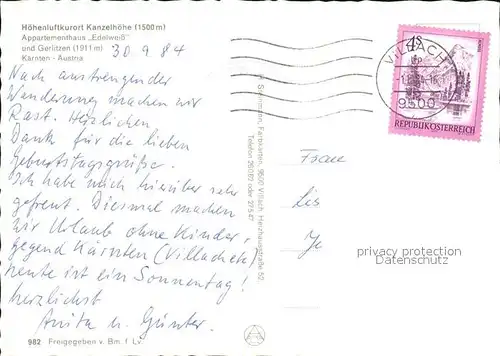 Höhenluftkurort Kanzelhöhe (1500 m)
Appartementhaus „Edelweiß"
und Gerlitzen (1911 m)
Kärnten - Austria
30.9.84
Nach anstrengender
Wanderung machen wir
Rast. Herzlichen
Dank für die lieben
Geburtstagsgrüße.
Ich habe mich hierüber sehr
gefreut. Diesmal machen
wir Urlaub ohne Kinder,
gegend Kärnten (Villach)
heute ist ein Sonnentag!
herzlichst
Anita u. Günter
982 Freigegeben v. Bm. f. Lv.
Farbkarten, 9500 Villach, Herzhausstraße 52
Telefon
4 S
VILLACH
9500
REPUBLIK ÖSTERREICH
Frau
privacy protection
Datenschutz